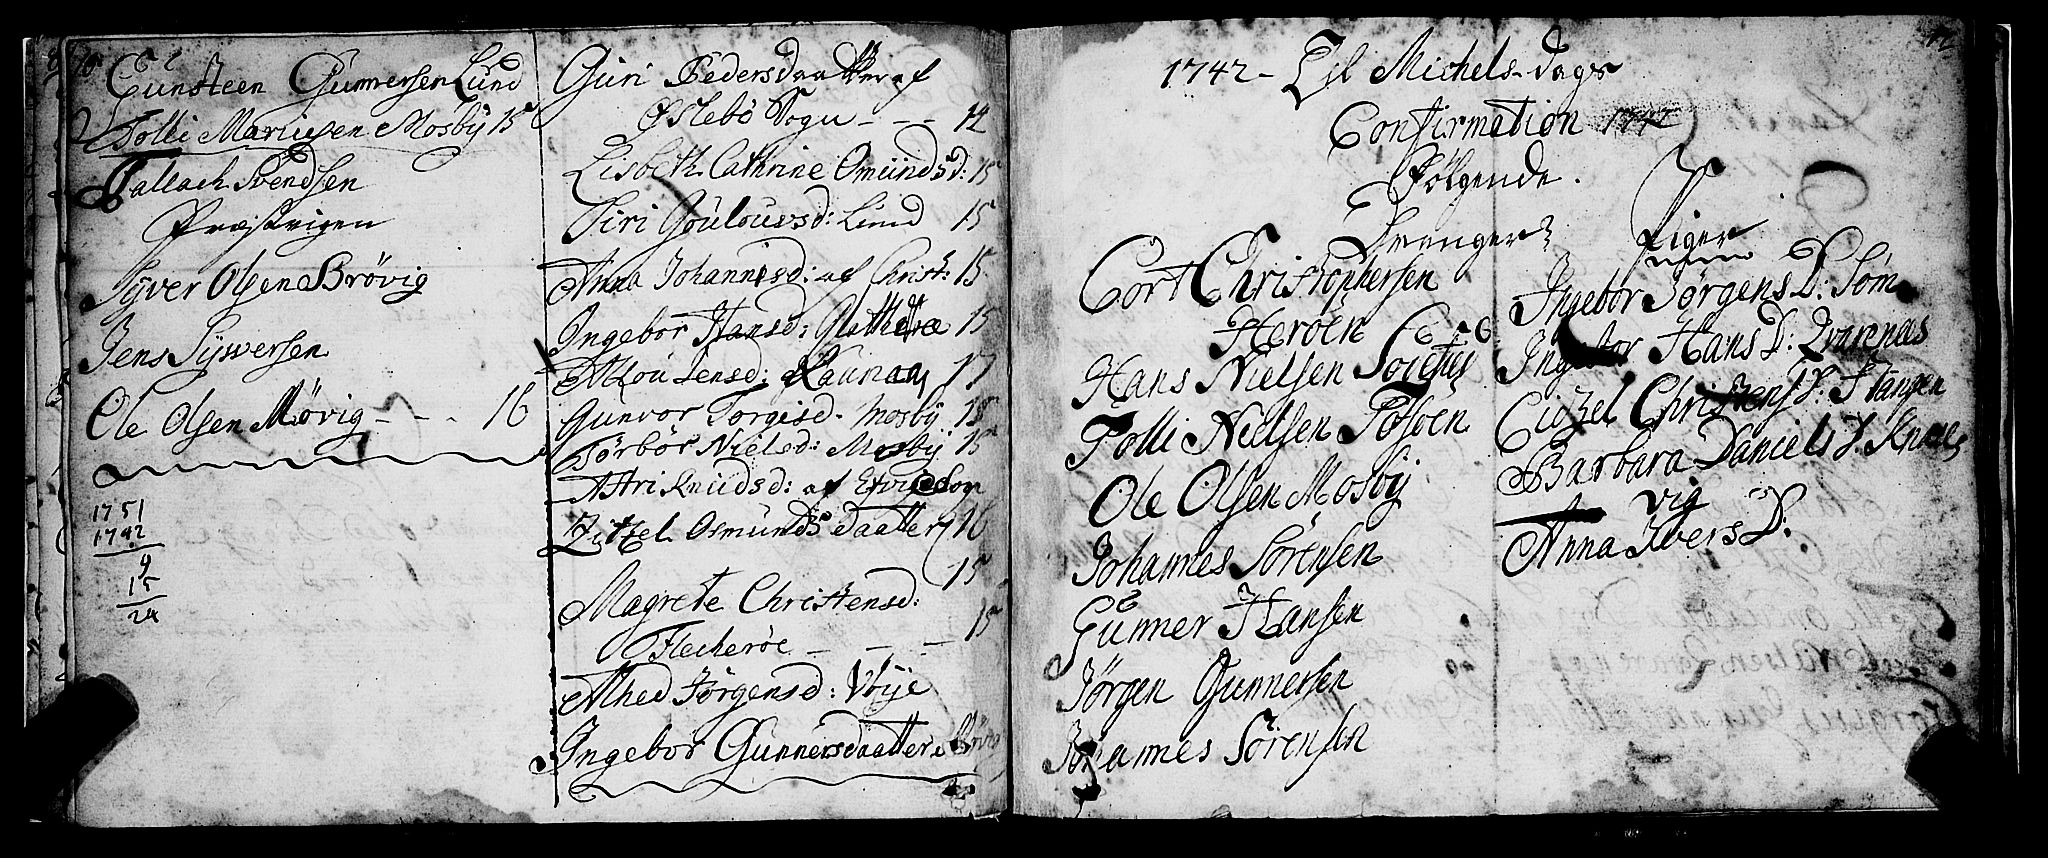 Gunsteen Gunnersen Lund
Tolli Mariusen Mosbÿ 15
Tallach Svendsen
Syver Olsen Brövig
Jens Syversen
Ole Olsen Mövig - - - 16
1751
1742
9
15
24
Guri Pedersdaatter af
Öslebö Sogn - - - 12
Lisbeth Cathrine Omünds D: 15
Siri Goulouvsd: Lund 15
Anna Johannisd: af Christ: 15
Ingebor Hansd: 15
Alou Jensd: 17
Gunvor Torgisd. Mosbÿ 18
Torbör Nielsd: Mosbÿ 15
Astri Knüdsd: af
Zittel Osmunds daatter 16
15
Magrete Christensd:
Flecheröe - - - 15
Alhed Jörgensd: Vöÿe
Ingebor Gunnersdaatter
1742 - Til Michels-dags
Confirmation 1742
Fölgende.
Drenger
Cort Christophersen
Heröen
Hans Nielsen
Tolli Nielsen
Ole Olsen Mosbÿ
Johannes Sörensen
Gunner Hansen
Jörgen Gunnersen
Johannes Sörensen
Piger
Ingebor Jörgens D: Söm
Ingebor Hans D: Qvarenes
Cidzel Christens D: Stangen
Barbara Daniels D.
vig
Anna Ivers D: